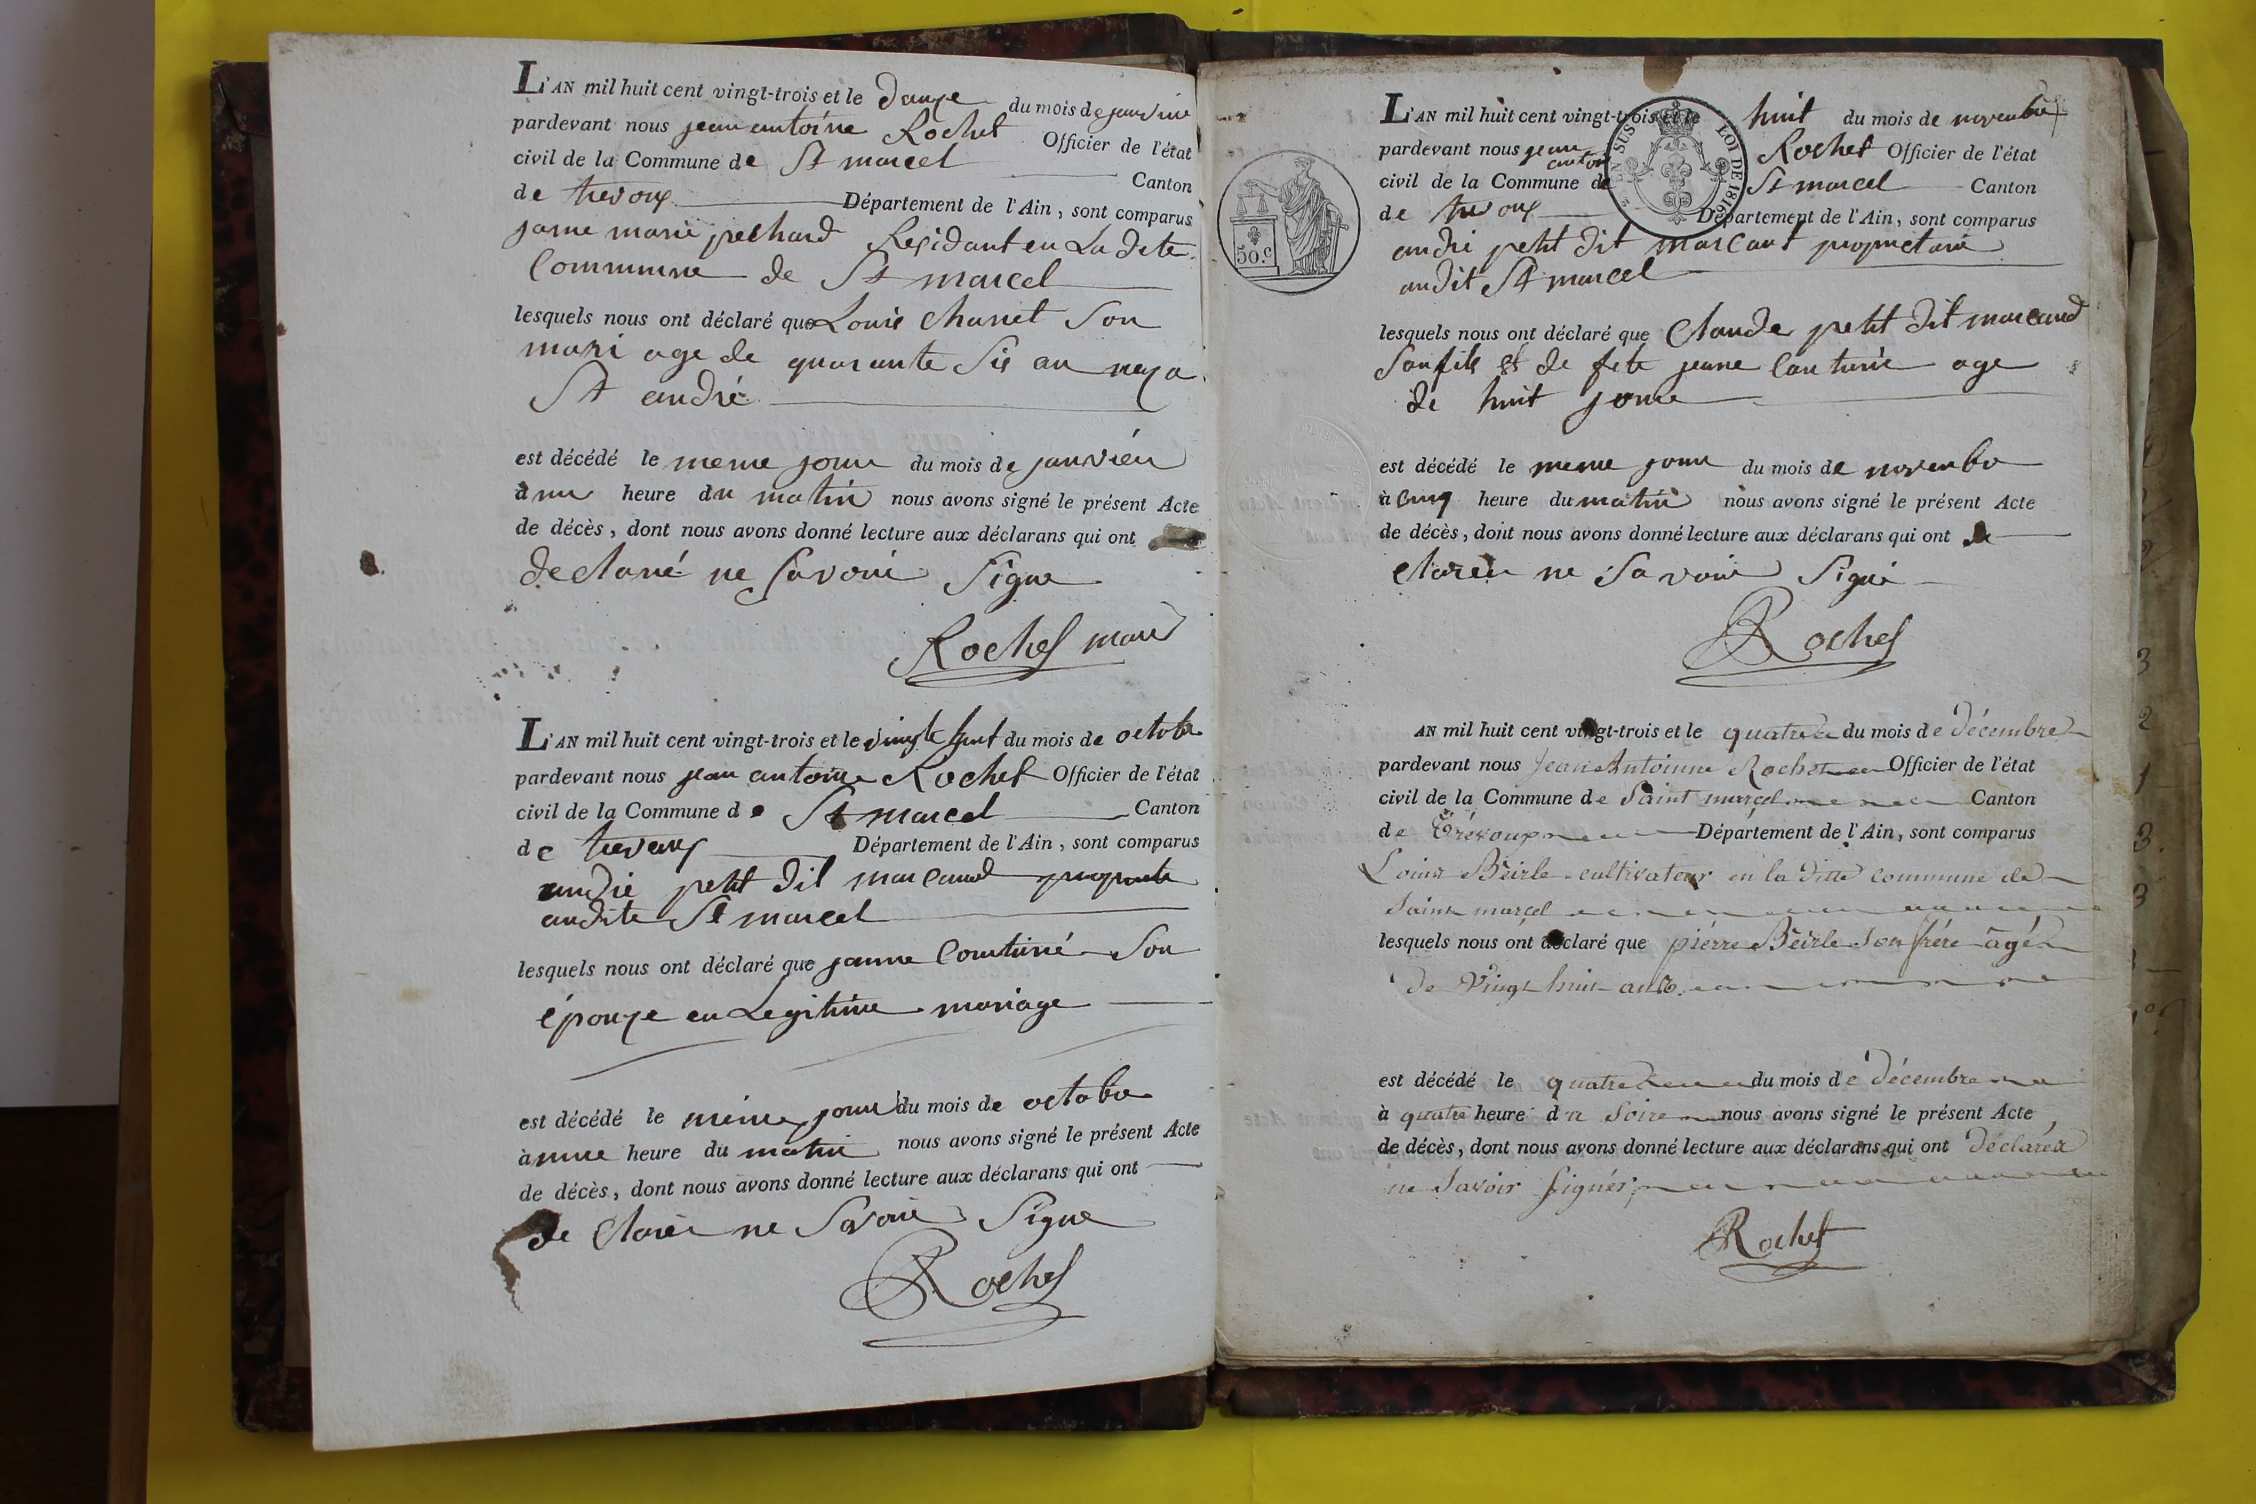 L'AN mil huit cent vingt-trois et le douze du mois de janvier
pardevant nous jean antoine Rochet Officier de l'état
civil de la Commune de St marcel Canton
de trevoux Département de l'Ain, sont comparus
marie pechard Residant en La dite
Commune de St marcel
lesquels nous ont déclaré que Louis Chanet Son
mari age de quarante Sis an
St andré
est décédé le meme jour du mois de janvier
heure du matin nous avons signé le présent Acte
de décès, dont nous avons donné lecture aux déclarans qui ont
declaré ne Savoir Signe
Rochet
L'AN mil huit cent vingt-trois et le vingt huit du mois de octobre
pardevant nous jean antoine Rochet Officier de l'état
civil de la Commune de St marcel Canton
de trevoux Département de l'Ain, sont comparus
andré petit dit marcand
audite St marcel
lesquels nous ont déclaré que Son
épouze en Legitime mariage
est décédé le même jour du mois de octobre
à heure du matin nous avons signé le présent Acte
de décès, dont nous avons donné lecture aux déclarans qui ont
de Clarer ne Savoir Signe
Rochet
L'AN mil huit cent vingt-trois et le huit du mois de novembre
pardevant nous jean antoin Rochet Officier de l'état
civil de la Commune de St marcel Canton
de trevoux Département de l'Ain, sont comparus
andré petit dit marcant propriétaire
audit St marcel
lesquels nous ont déclaré que Claude petit dit marcand
Son fils et de jeane Couturie age
de huit jour
est décédé le meme jour du mois de novembre
à cinq heure du matin nous avons signé le présent Acte
de décès, dont nous avons donné lecture aux déclarans qui ont de
clarer ne Savoir Signé
Rochet
EN SUS LOI DE 1816
50.c
AN mil huit cent vingt-trois et le quatre du mois de décembre
pardevant nous Jean Antoinne Rochet Officier de l'état
civil de la Commune de Saint marcel Canton
de Trévoux Département de l'Ain, sont comparus
Louis Beirle cultivateur en la ditte commune de
Saint marcel
lesquels nous ont déclaré que piérre Beirle Son frére âgé
de vingt huit ans
est décédé le quatre du mois de décembre
à quatre heure du Soire nous avons signé le présent Acte
de décès, dont nous avons donné lecture aux déclarans qui ont déclaréz
ne Savoir Signér
Rochet